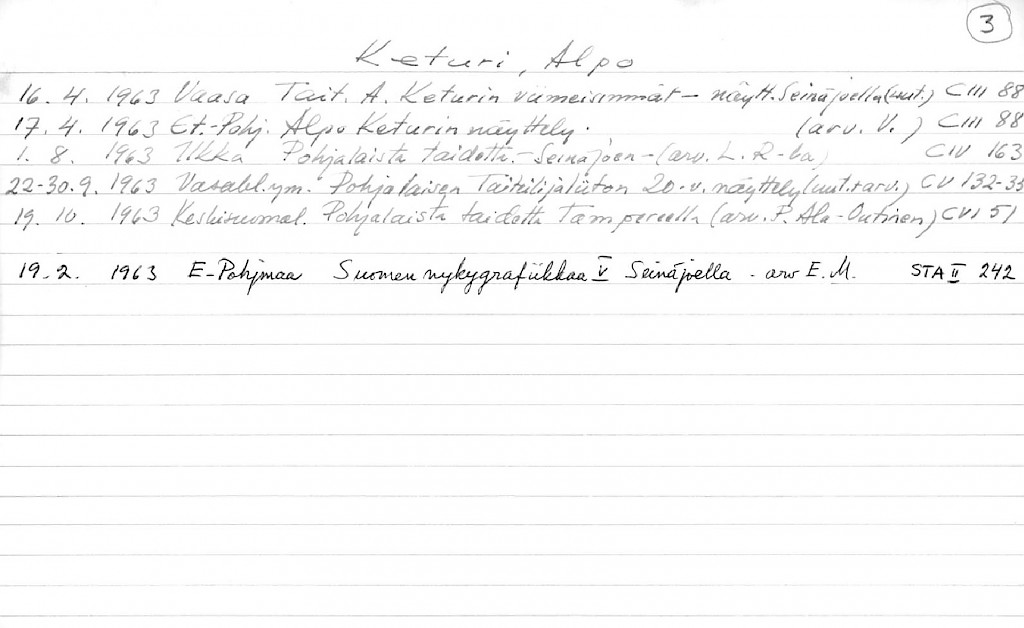 3
Keturi, Alpo
16. 4. 1963 Vaasa Tait. A. Keturin viimeisimmät - näytt. Seinäjoella (uut.) CIII 88
17. 4. 1963 Et.-Pohj. Alpo Keturin näyttely. (arv. V.) CIII 88
1. 8. 1963 Ilkka Pohjalaista taidetta.- Seinäjoen - (arv. L. R-la) CIV 163
22-30.9. 1963 Vasabl. ym. Pohjalaisen Taiteilijaliiton 20-v. näyttely (uut.+arv.) CV 132-35
19. 10. 1963 Keskisuomal. Pohjalaista taidetta Tampereella (arv. P. Ala-Outinen) CVI 51
19.2. 1963 E-Pohjmaa Suomen nykygrafiikkaa V Seinäjoella - arv E. M. STA II 242